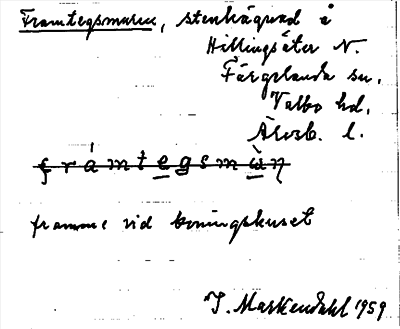 Framtegsmuren, stenhägnad å
Hillingsäter N.
Färgelanda sn.
Valbo hd.
Älvsb. l.
frámtegsmù̱ŋ
framme vid boningshuset
I. Markendahl 1959